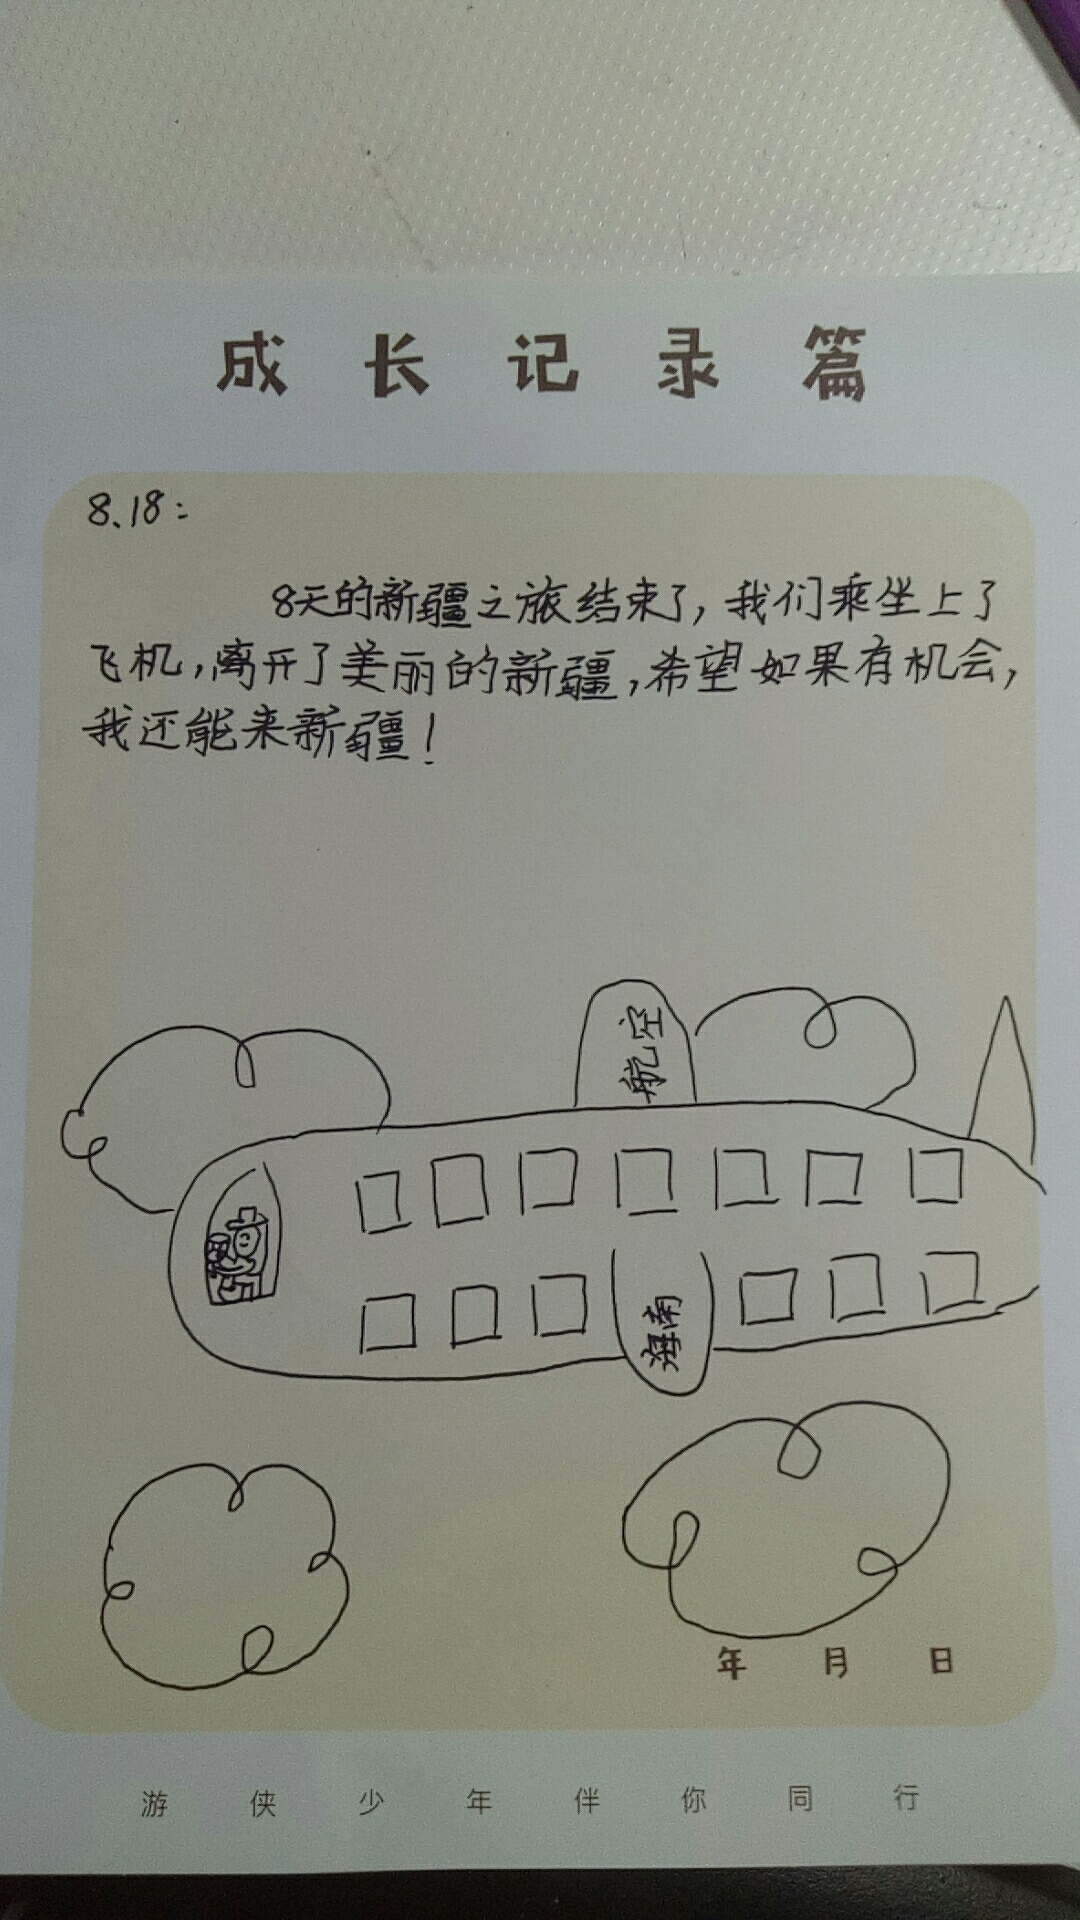 成长记录篇
8.18:
8天的新疆之旅结束了,我们乘坐上了
飞机,离开了美丽的新疆,希望如果有机会,
我还能来新疆!
航空
海南
年 月 日
游侠少年伴你同行